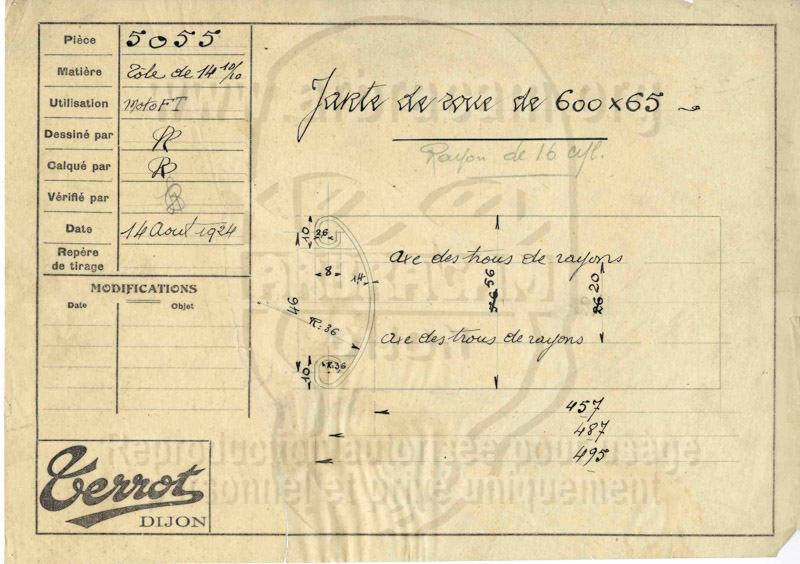 Pièce 5055
Matière Tôle de 14 10/10
Utilisation Moto FT
Dessiné par R
Calqué par R
Vérifié par
Date 14 Aout 1924
Repère
de tirage
MODIFICATIONS
Date Objet
Jante de roue de 600x65
Rayon de 16 cyl.
10
36
axe des trous de rayons
8
14
46
56
20
26
R.36
axe des trous de rayons
R.36
10
457
487
495
Terrot
DIJON
Reproduction autorisée pour usage
personnel et privé uniquement